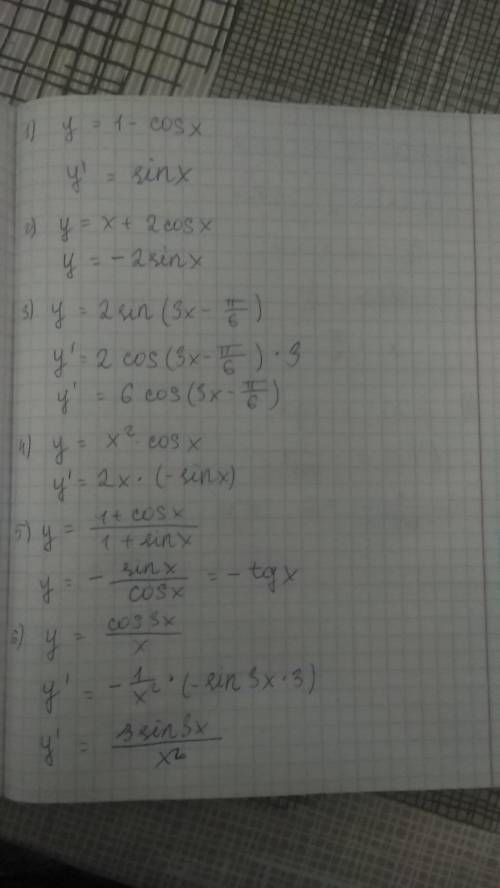 1) y = 1 - cosx
y' = sinx
2) y = x + 2cosx
y = -2sinx
3) y = 2sin(3x - π/6)
y' = 2 cos(3x - π/6) · 3
y' = 6 cos(3x - π/6)
4) y = x² cosx
y' = 2x · (-sinx)
5) y = (1 + cosx)/(1 + sinx)
y = - sinx/cosx = - tgx
6) y = cos3x/x
y' = - 1/x² · (-sin3x · 3)
y' = 3sin3x/x²